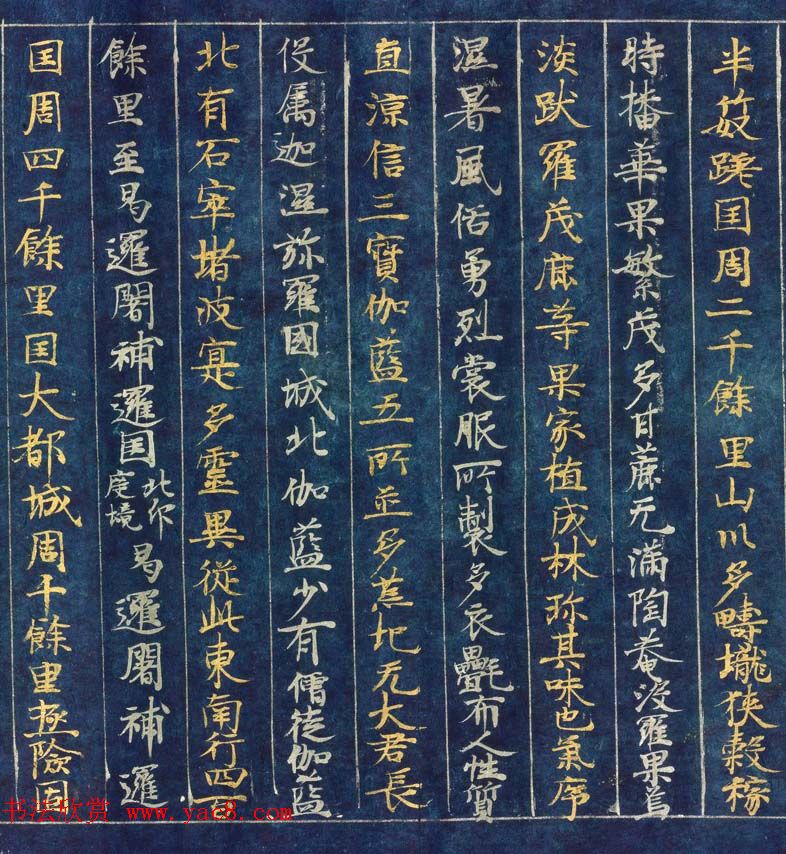 半笯蹉国周二千餘里山川多疇壠狭穀稼
時播華果繁茂多甘蔗无满陶菴波羅果烏
淡跋羅茂麻等果家植成林珎其味也氣序
濕暑風俗勇烈裳服所製多衣氎布人性質
直淳信三寶伽藍五所並多荒圮无大君長
伇属迦濕弥羅國城北伽藍少有僧徒伽藍
北有石窣堵波寔多靈異從此東南行四百
餘里至曷邏闍補邏国北印度境曷邏闍補邏
国周四千餘里国大都城周千餘里極險固
书法欣赏 www.yac8.com